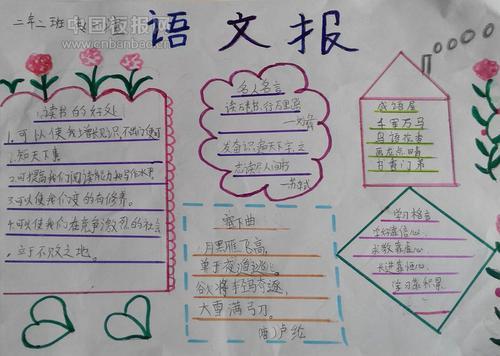 二年二班
中国教报网
www.cnbanbao.cn
语文报
读书的好处
1.可以使我们增长见识不出门便可
知天下事
2.可提高我们阅读能力和写作水平
3.可以使我们变的有修养。
4.可以使我们在竞争激烈的社会
立于不败之地。
名人名言
读万卷书,行万里路
发奋识遍天下字,立
志读尽人间书
—苏轼
成语屋
千军万马
鸟语花香
画龙点睛
塞下曲
月黑雁飞高,
单于夜遁逃。
欲将轻骑逐,
大雪满弓刀。
唐)卢纶
学习格言
学好靠信心,
求教靠虚心,
长进靠恒心,
学习靠积累